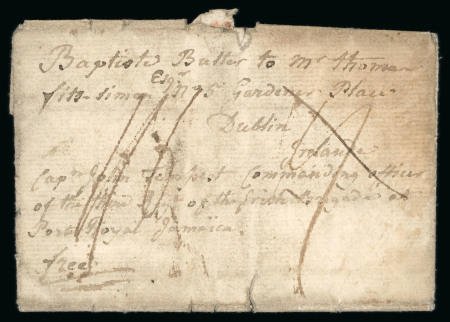 Baptiste Butler to Mr Thomas
fitt-simon Esqr No 5 Gardener Place
Dublin
Irelande
Capn John Tempest Commanding officer
of the three Regt of the Irish Brigade at
Port Royal Jamaica
free